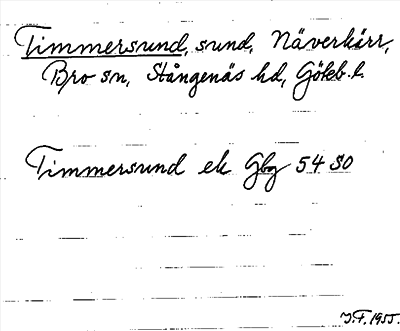 Timmersund, sund, Näverkärr,
Bro sn, Stångenäs hd, Göteb. l.
Timmersund ek Gbg 54 SO
J.F. 1955.